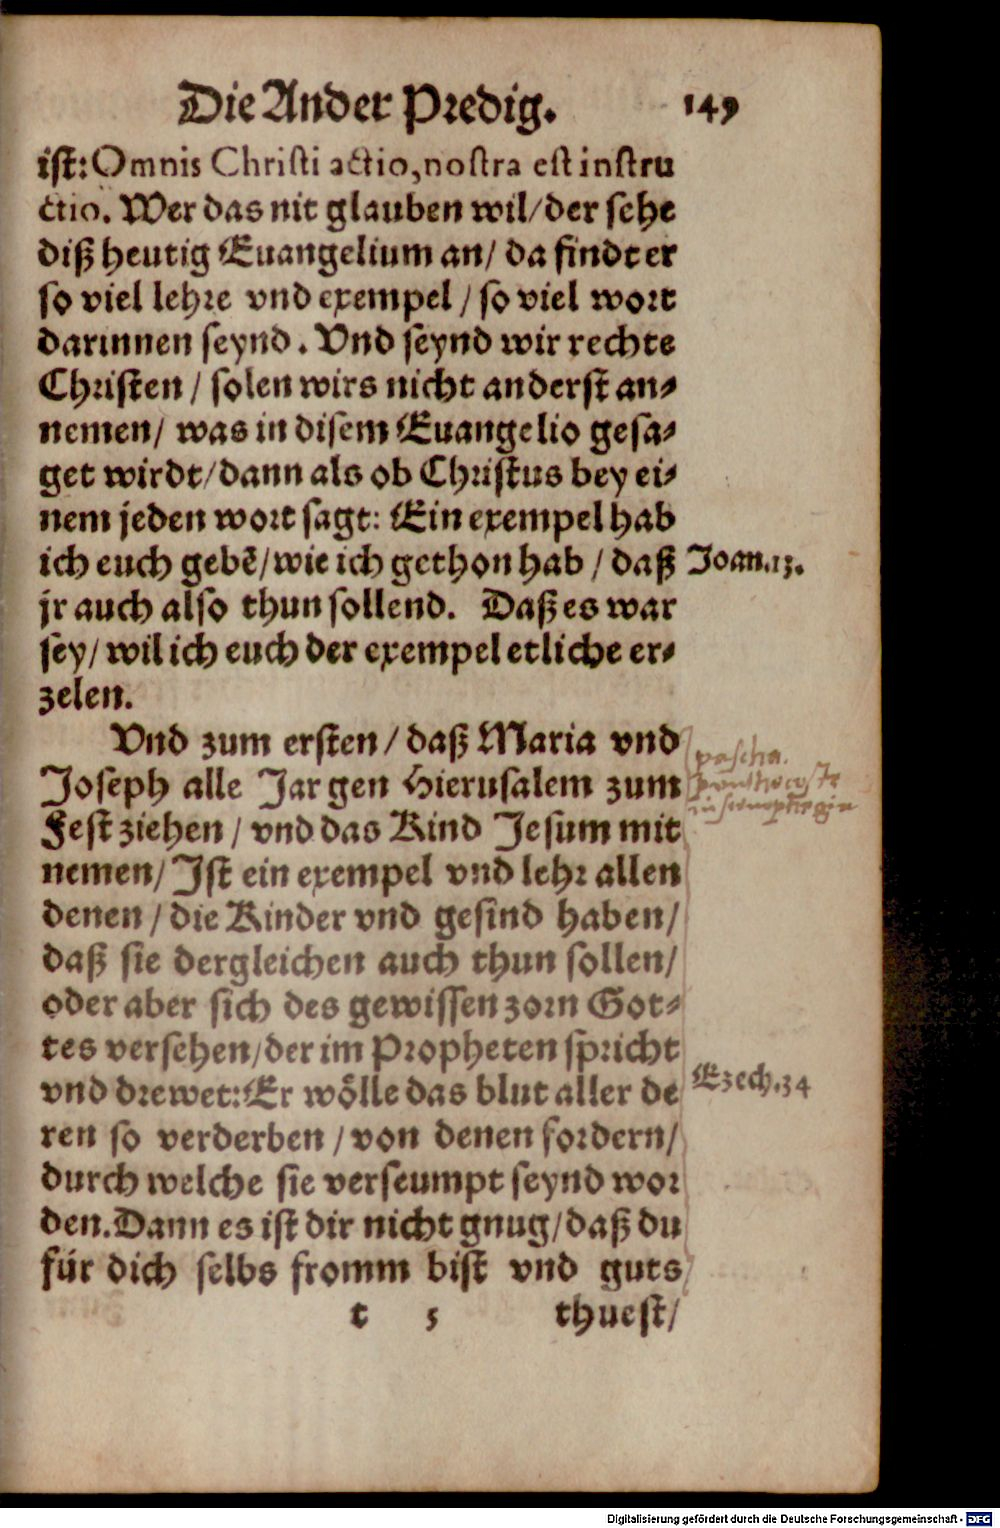 Die Ander Predig. 149
ist: Omnis Christi actio, nostra est instru
ctio. Wer das nit glauben wil/ der sehe
diß heutig Euangelium an/ da findt er
so viel lehre vnd exempel / so viel wort
darinnen seynd. Vnd seynd wir rechte
Christen / solen wirs nicht anderst an⸗
nemen/ was in disem Euangelio gesa⸗
get wirdt/ dann als ob Christus bey ei⸗
nem jeden wort sagt: Ein exempel hab
ich euch gebẽ/ wie ich gethon hab / daß
Joan.13.
jr auch also thun sollend. Daß es war
sey/ wil ich euch der exempel etliche er⸗
zelen.
Vnd zum ersten / daß Maria vnd
Joseph alle Jar gen Hierusalem zum
Fest ziehen / vnd das Kind Jesum mit
nemen/ Ist ein exempel vnd lehr allen
denen / die Kinder vnd gesind haben/
daß sie dergleichen auch thun sollen/
oder aber sich des gewissen zorn Got⸗
tes versehen/ der im Propheten spricht
vnd drewet: Er woͤlle das blut aller de
Ezech.34
ren so verderben / von denen fordern/
durch welche sie verseumpt seynd wor
den. Dann es ist dir nicht gnug/ daß du
für dich selbs fromm bist vnd guts
t 5 thuest/
pascha.
Digitalisierung gefördert durch die Deutsche Forschungsgemeinschaft - DFG